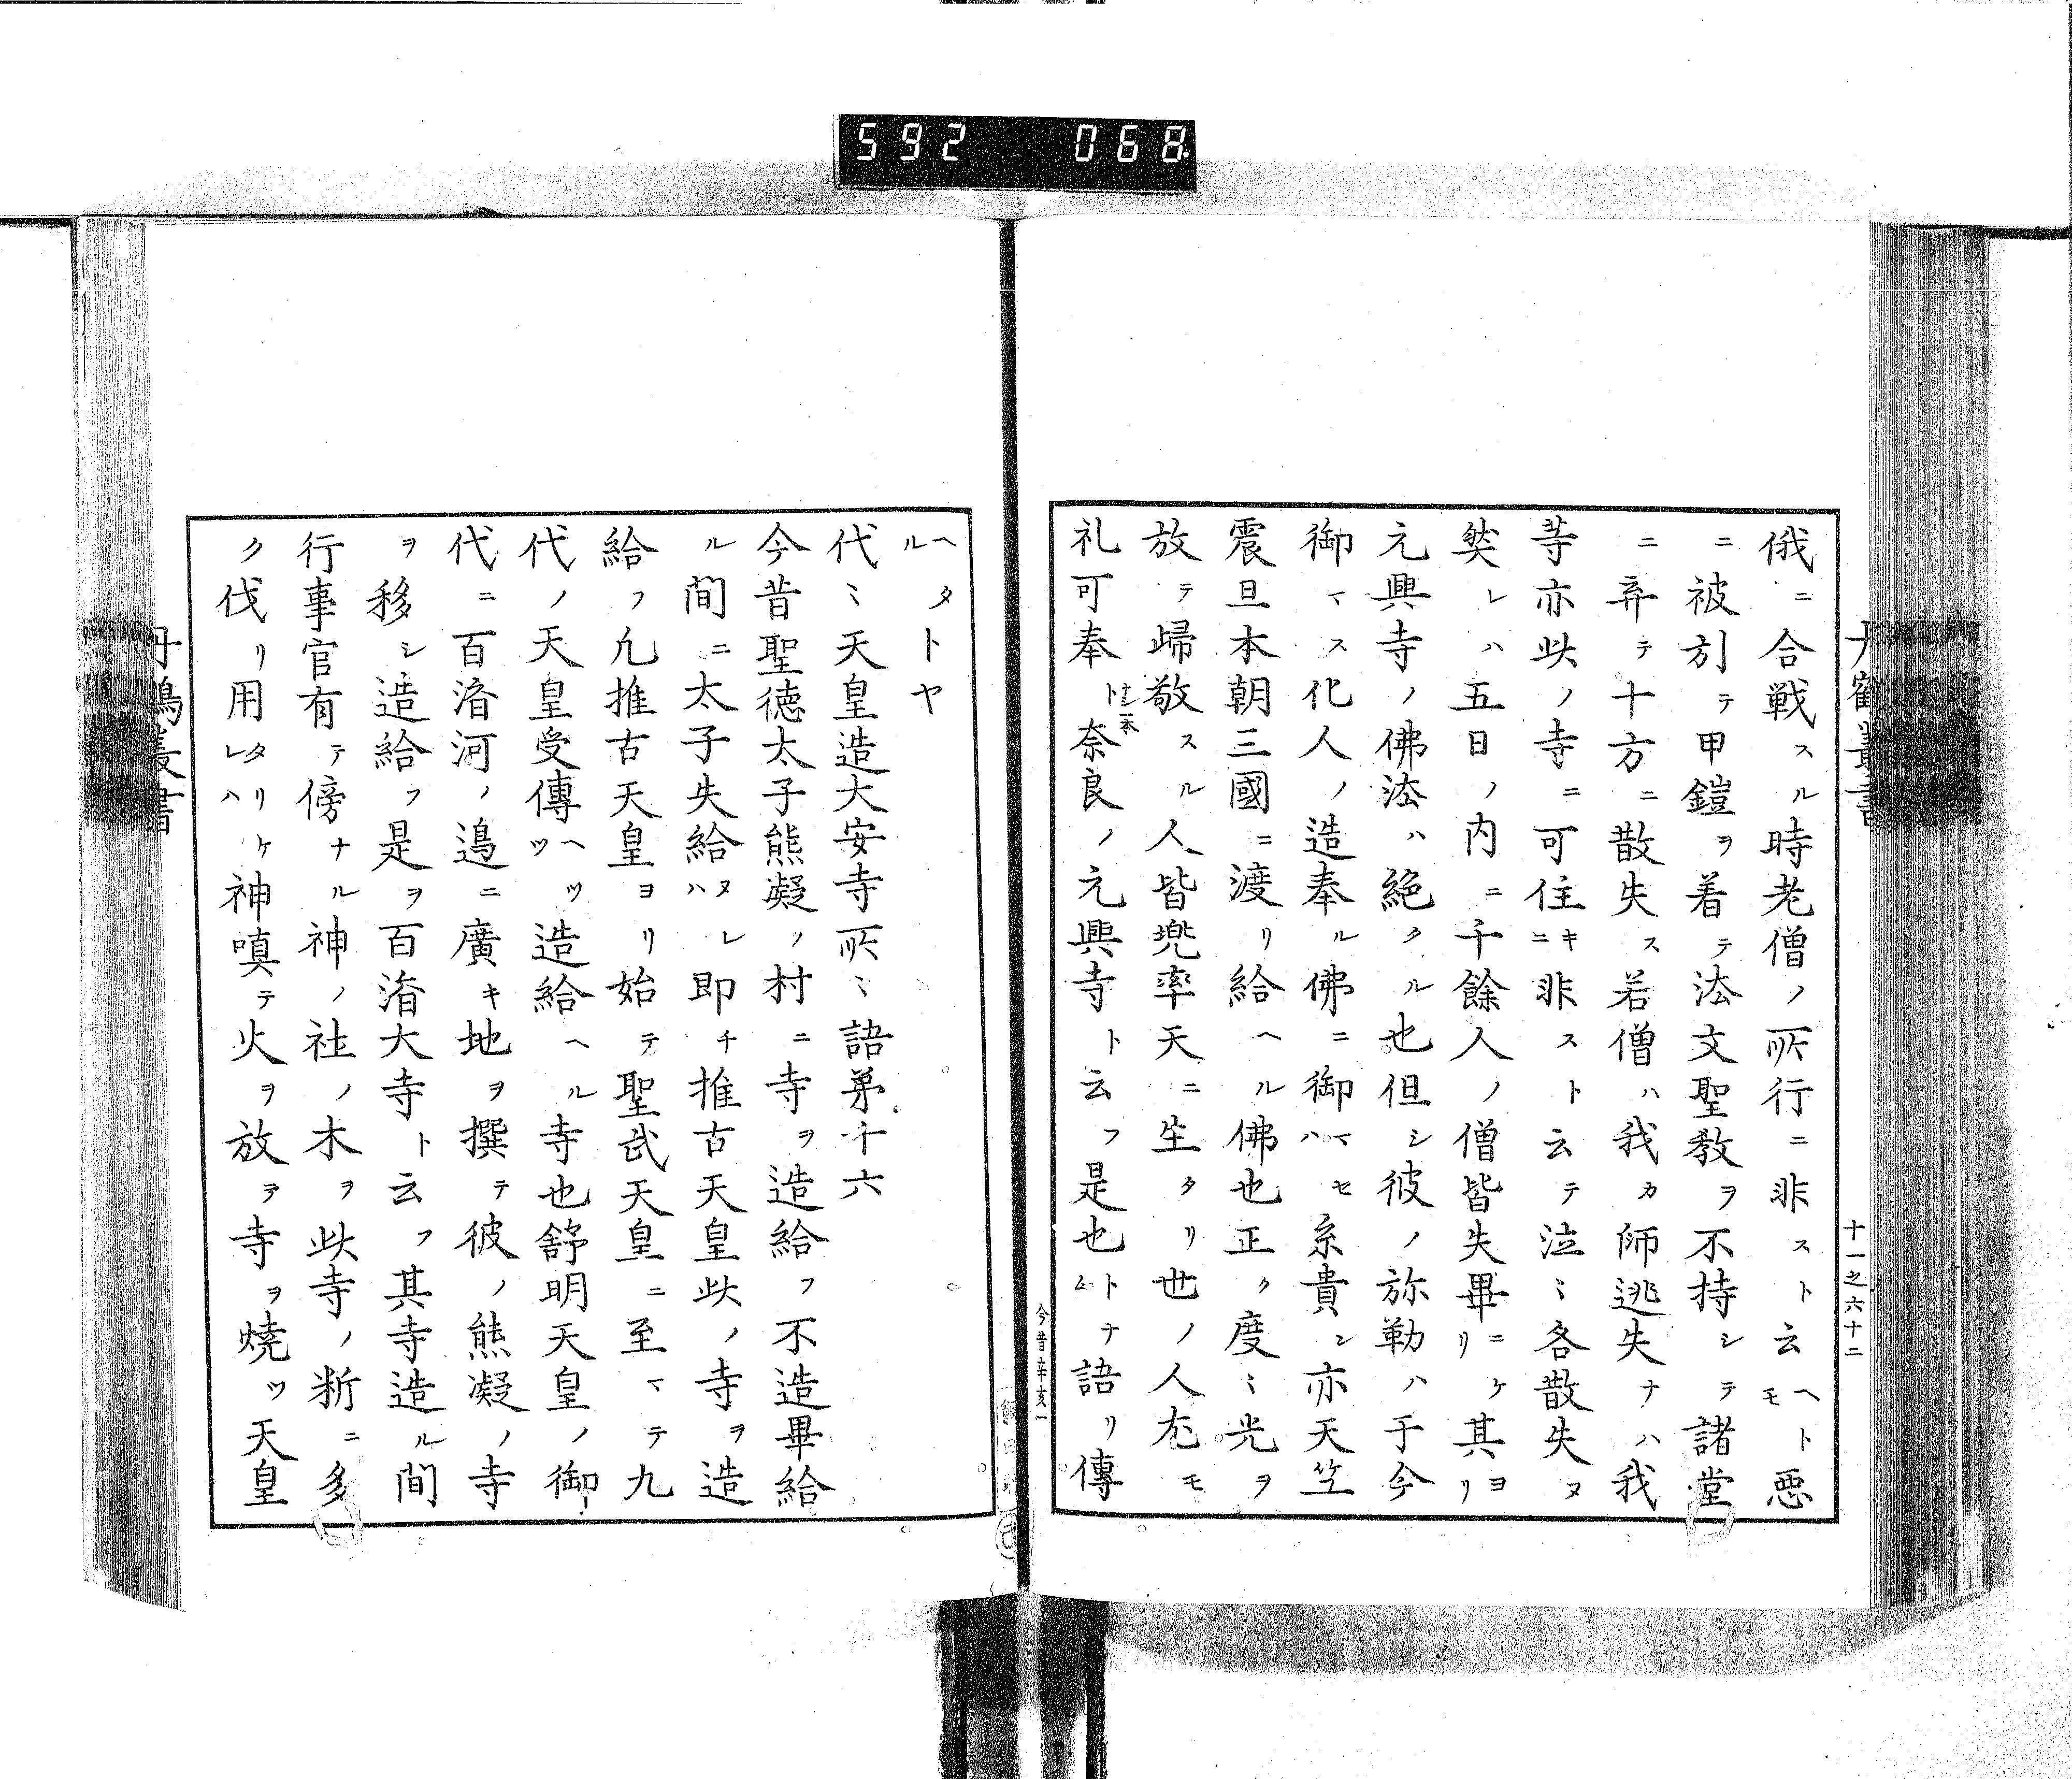 592 068
俄ニ合戦スル時老僧ノ所行ニ非スト云ヘトモ悪
ニ被引テ甲鎧ヲ着テ法文聖教ヲ不持シテ諸堂
ニ弃テ十方ニ散失ス若僧ハ我カ師逃失ナハ我
等亦此ノ寺ニ可住キニ非スト云テ泣〻各散失ヌ
然レハ五日ノ内ニ千餘人ノ僧皆失畢ニケリ其ヨリ
元興寺ノ佛法ハ絶タル也但シ彼ノ弥勒ハ于今
御マス化人ノ造奉ル佛ニ御マセハ糸貴シ亦天竺
震旦本朝三國ニ渡リ給ヘル佛也正ク度〻光ヲ
放テ歸敬スル人皆兜率天ニ生タリ世ノ人尤モ
礼可奉ト奈良ノ元興寺ト云フ是也トナム語リ傳
十一之六十二
今昔辛亥一
ヘタルトヤ
代〻天皇造大安寺所〻語第十六
今昔聖德太子熊凝ノ村ニ寺ヲ造給フ不造畢給
ル間ニ太子失給ヌレハ即チ推古天皇此ノ寺ヲ造
給フ凡推古天皇ヨリ始テ聖武天皇ニ至マテ九
代ノ天皇受傳ヘツツ造給ヘル寺也舒明天皇ノ御
代ニ百濟河ノ邊ニ廣キ地ヲ撰テ彼ノ熊凝ノ寺
ヲ移シ造給フ是ヲ百濟大寺ト云フ其寺造ル間
行事官有テ傍ナル神ノ社ノ木ヲ此寺ノ断ニ多
ク伐リ用タリケレハ神嗔テ火ヲ放テ寺ヲ燒ツ天皇